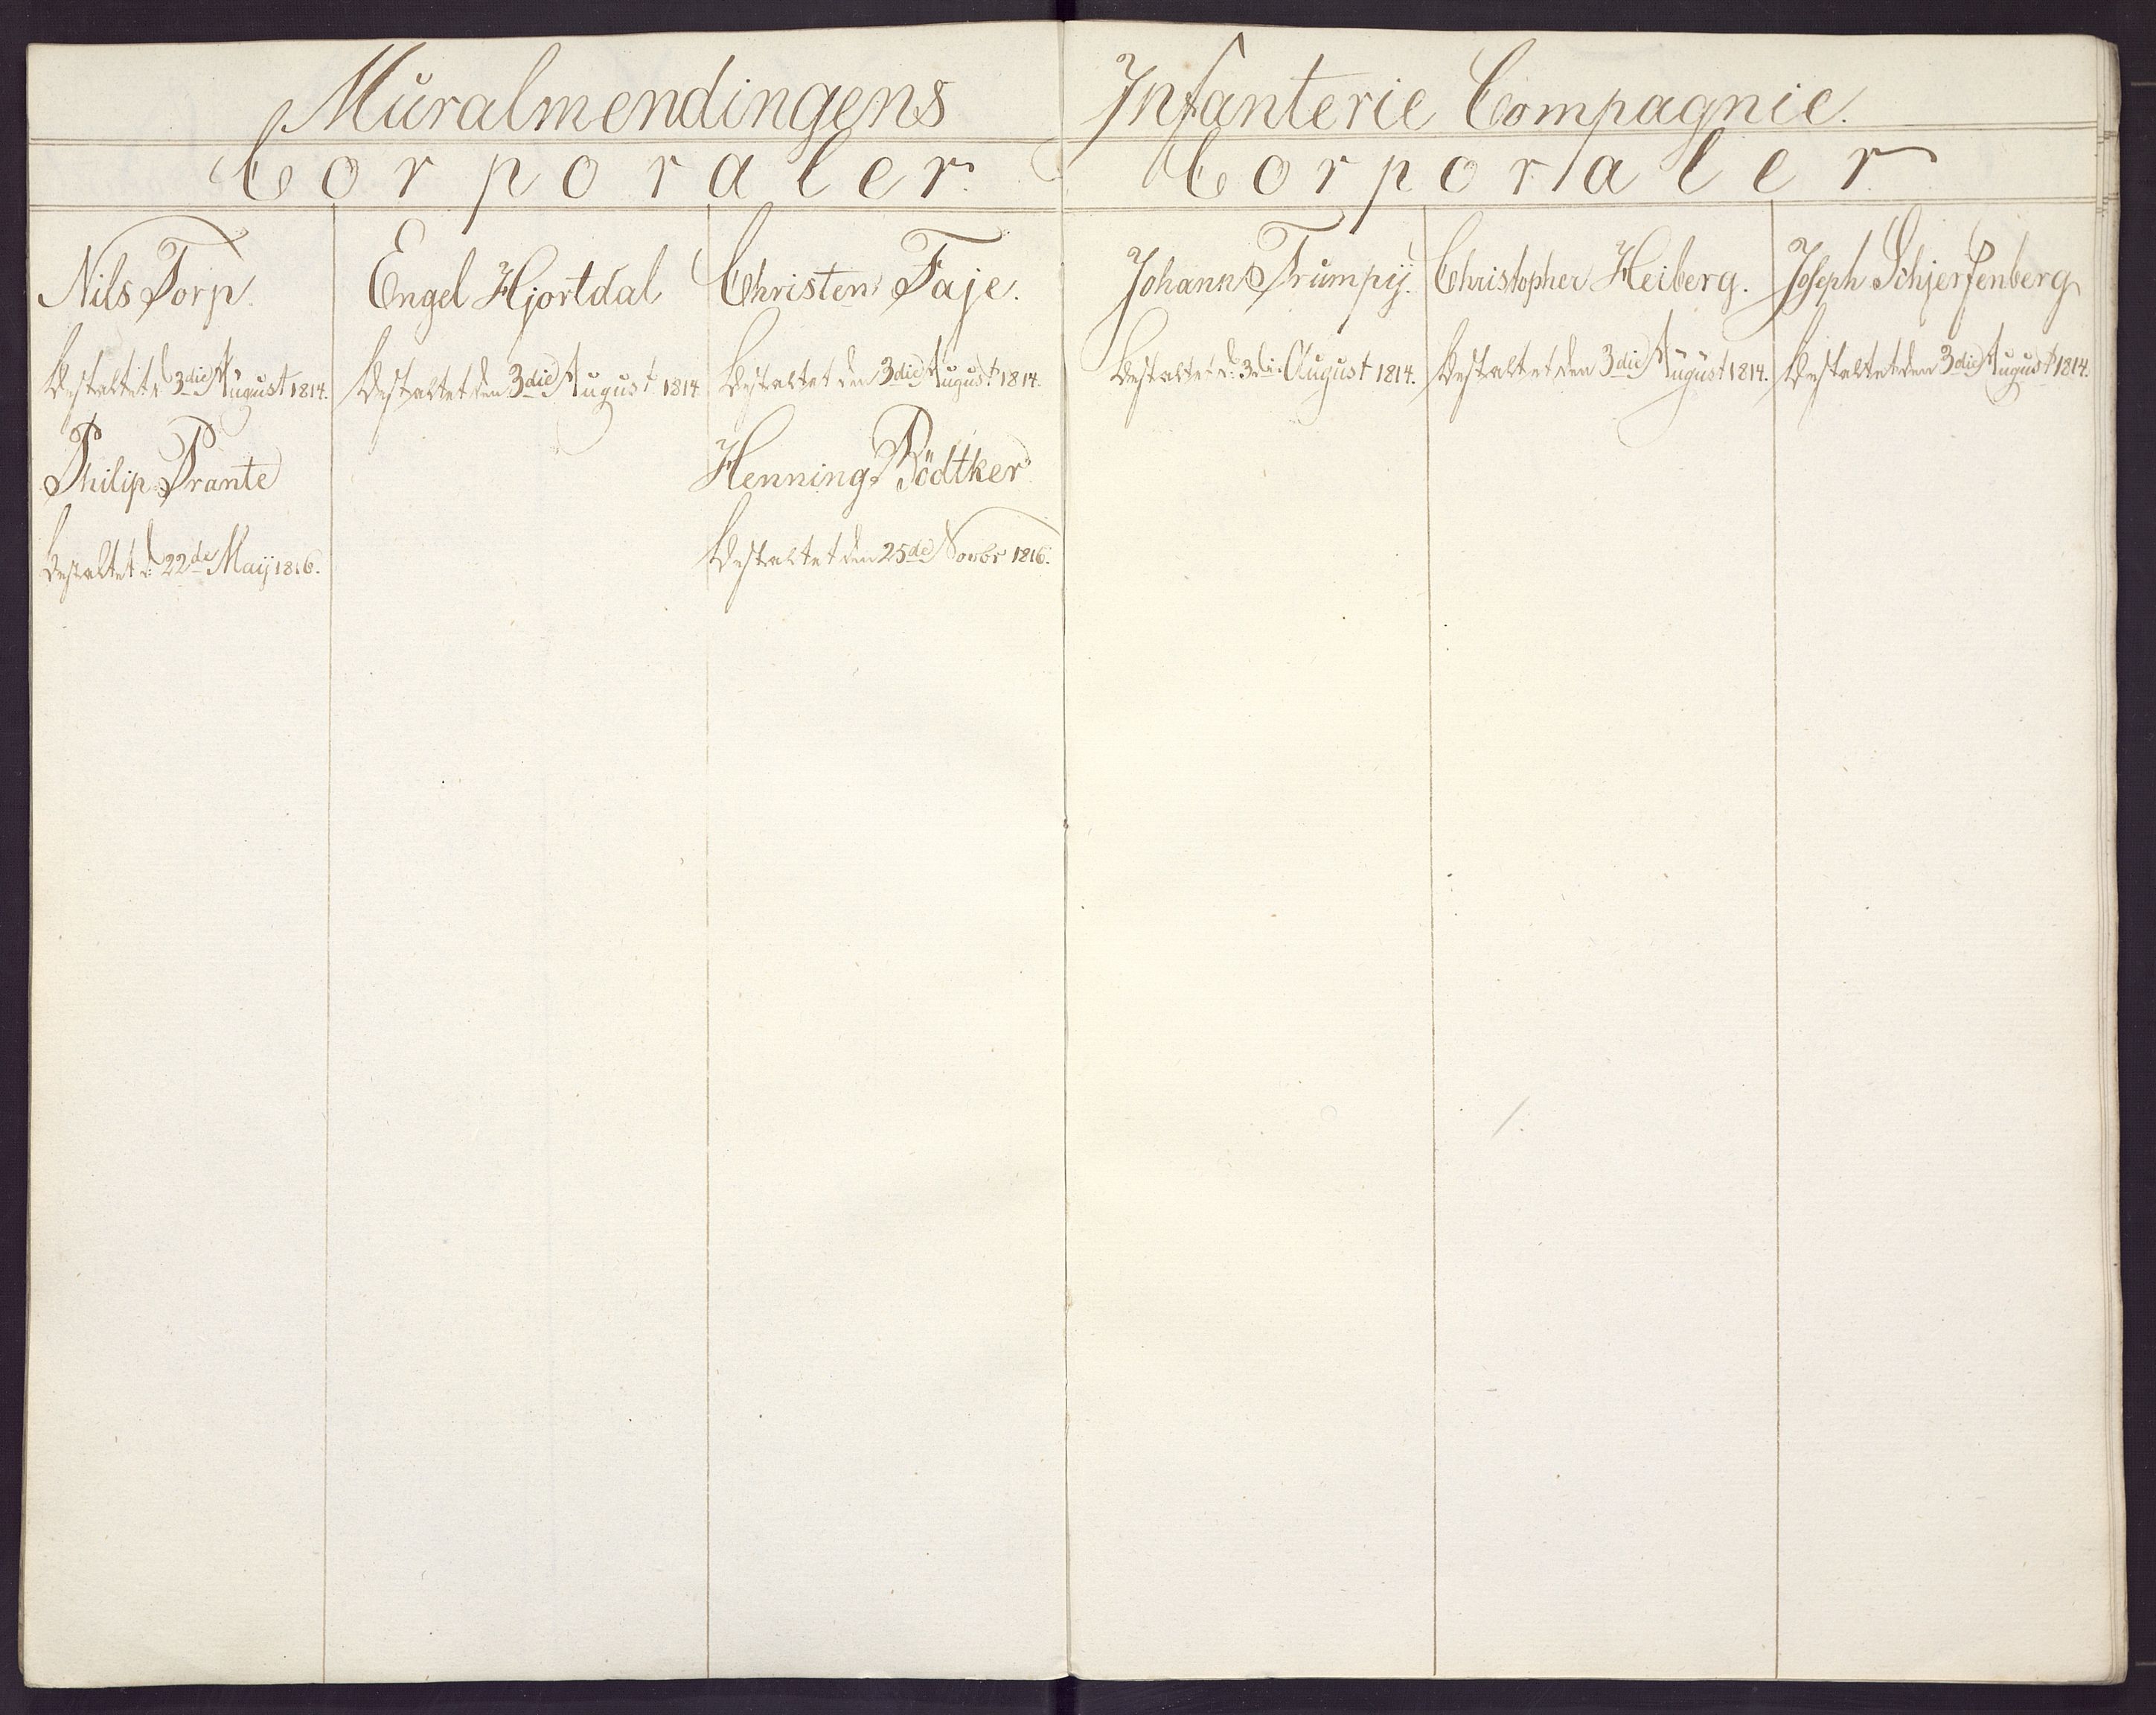 Muralmendingens Infanterie Compagnie.
Corporaler. Corporaler
Nils Torp.
Bestaltet d. 3die August 1814.
Philip Prante
Bestaltet d: 22de Maij 1816.
Engel Hjortdal
Bestaltet den 3die August 1814
Christen Faje.
Bestaltet den 3die August 1814.
Henning Bödtker
Bestaltet den 25de Novbr 1816.
Johannes Trumpij.
Bestaltet d: 3die August 1814.
Christopher Heiberg.
Bestaltet den 3die August 1814.
Joseph Schjerfenberg
Bestaltet den 3die August 1814.